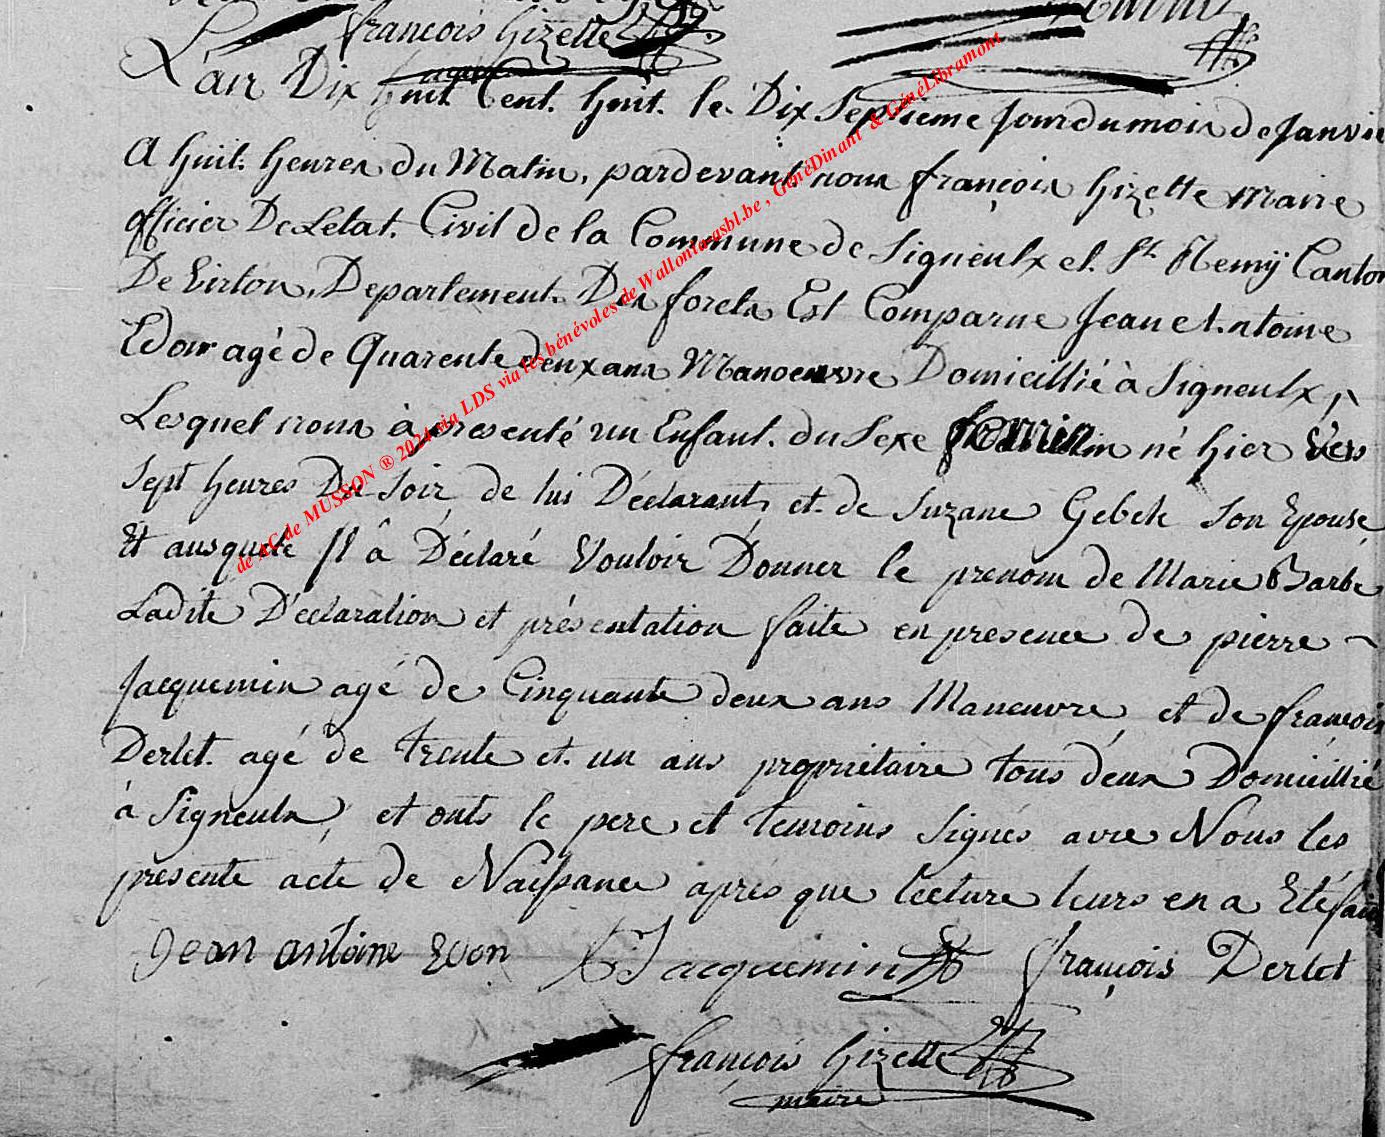 françois Gizette
maire
L'an Dix huit Cent. huit. le Dix Septieme Jour du mois de Janvie
A huit. heures du Matin, pardevant nous françois Gizette maire
officier De Letat. Civil de la Commune de Signeulx et. St. Remÿ Canton
De Virton, Departement. Des forets Est Comparue Jean Antoine
Edon agé de Quarente deux ans Manoeuvre Domicillié à Signeulx,
Lesquel nous à presenté un Enfant. du Sexe feminin né hier Vers
Sept heures Du Soir, de lui Déclarant, et. de Suzane Gebele Son Epouse,
Et auquele Il â Déclaré Vouloir Donner le prenom de Marie Barbe
Ladite Déclaration et présentation faite en presence de pierre ~
Jacquemin agé de Cinquante deux ans Maneuvre, et de françois
Derlet. agé de trente et. un ans propriétaire tous deux Domicillié
à Signeulx, et onts le pere et temoins Signés avec Nous les
présente acte de Naissance après que lecture leurs en a Eté fait
Jean antoine Edon Jacquemin françois Derlet
françois Gizette
maire
de AC de MUSSON ® 2024 via LDS via les bénévoles de Wallonia-asbl.be , GénéDinant & GénéLibramont